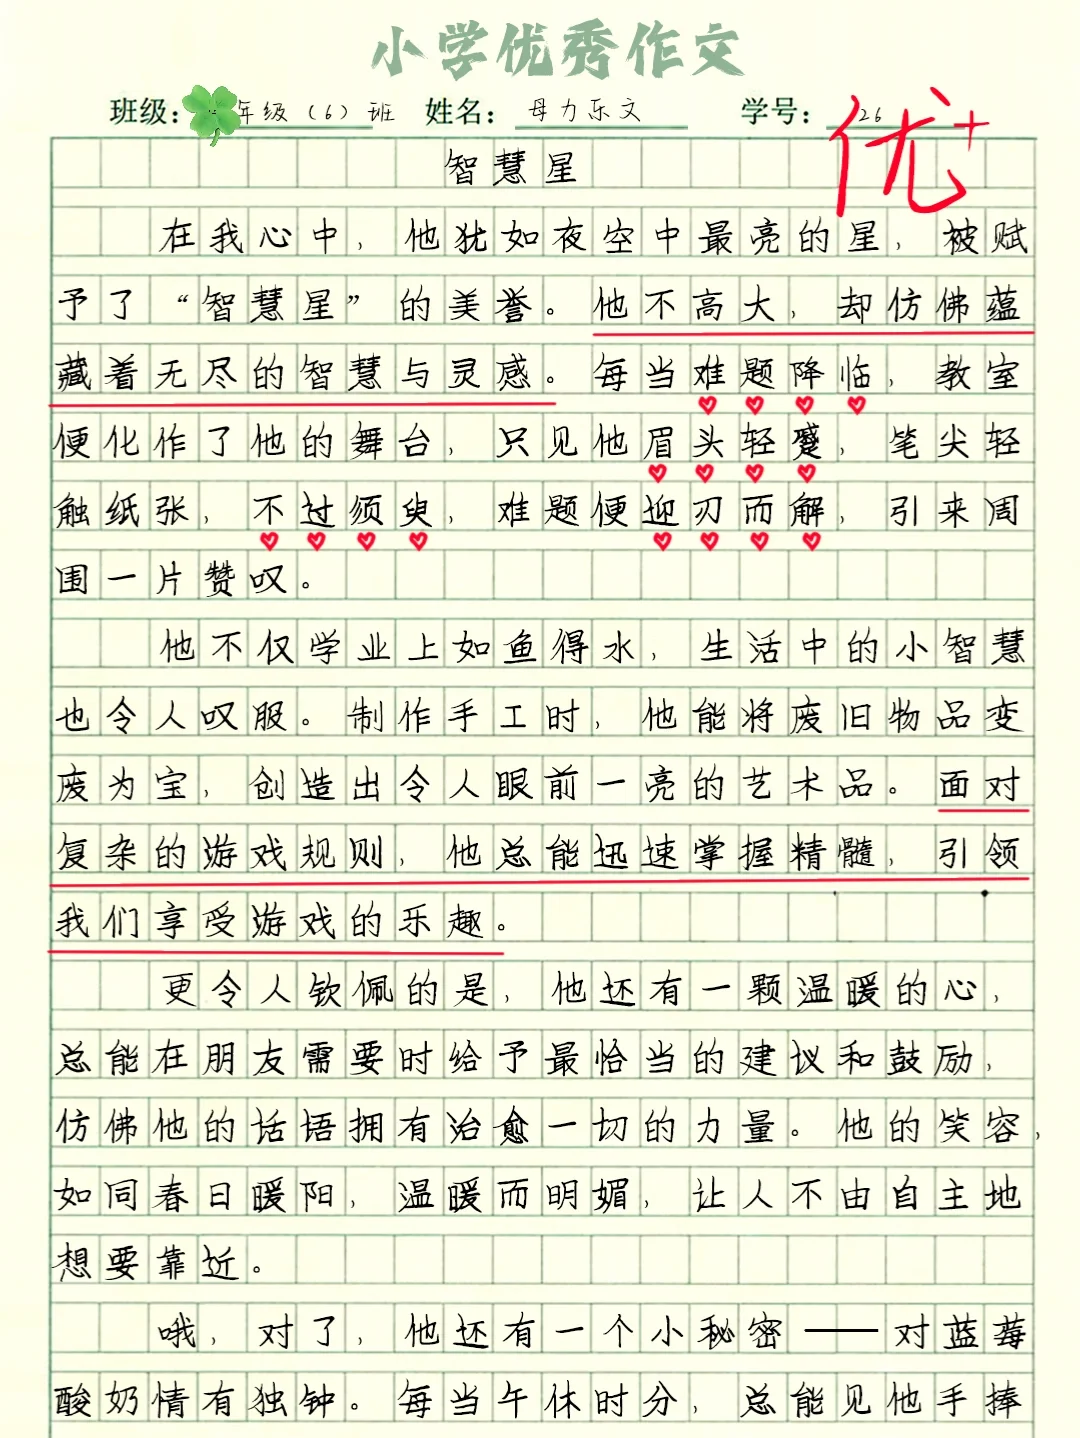 小学优秀作文
班级： 年级（6）班 姓名： 母力乐文 学号： 26
优+
智慧星
在我心中，他犹如夜空中最亮的星，被赋
予了“智慧星”的美誉。他不高大，却仿佛蕴
藏着无尽的智慧与灵感。每当难题降临，教室
便化作了他的舞台，只见他眉头轻蹙，笔尖轻
触纸张，不过须臾，难题便迎刃而解，引来周
围一片赞叹。
他不仅学业上如鱼得水，生活中的小智慧
也令人叹服。制作手工时，他能将废旧物品变
废为宝，创造出令人眼前一亮的艺术品。面对
复杂的游戏规则，他总能迅速掌握精髓，引领
我们享受游戏的乐趣。
更令人钦佩的是，他还有一颗温暖的心，
总能在朋友需要时给予最恰当的建议和鼓励，
仿佛他的话语拥有治愈一切的力量。他的笑容，
如同春日暖阳，温暖而明媚，让人不由自主地
想要靠近。
哦，对了，他还有一个小秘密——对蓝莓
酸奶情有独钟。每当午休时分，总能见他手捧